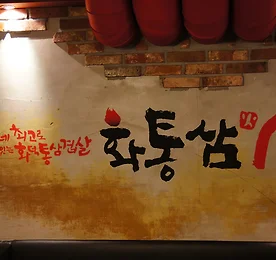 최고로
화덕통삼겹살
화통삼